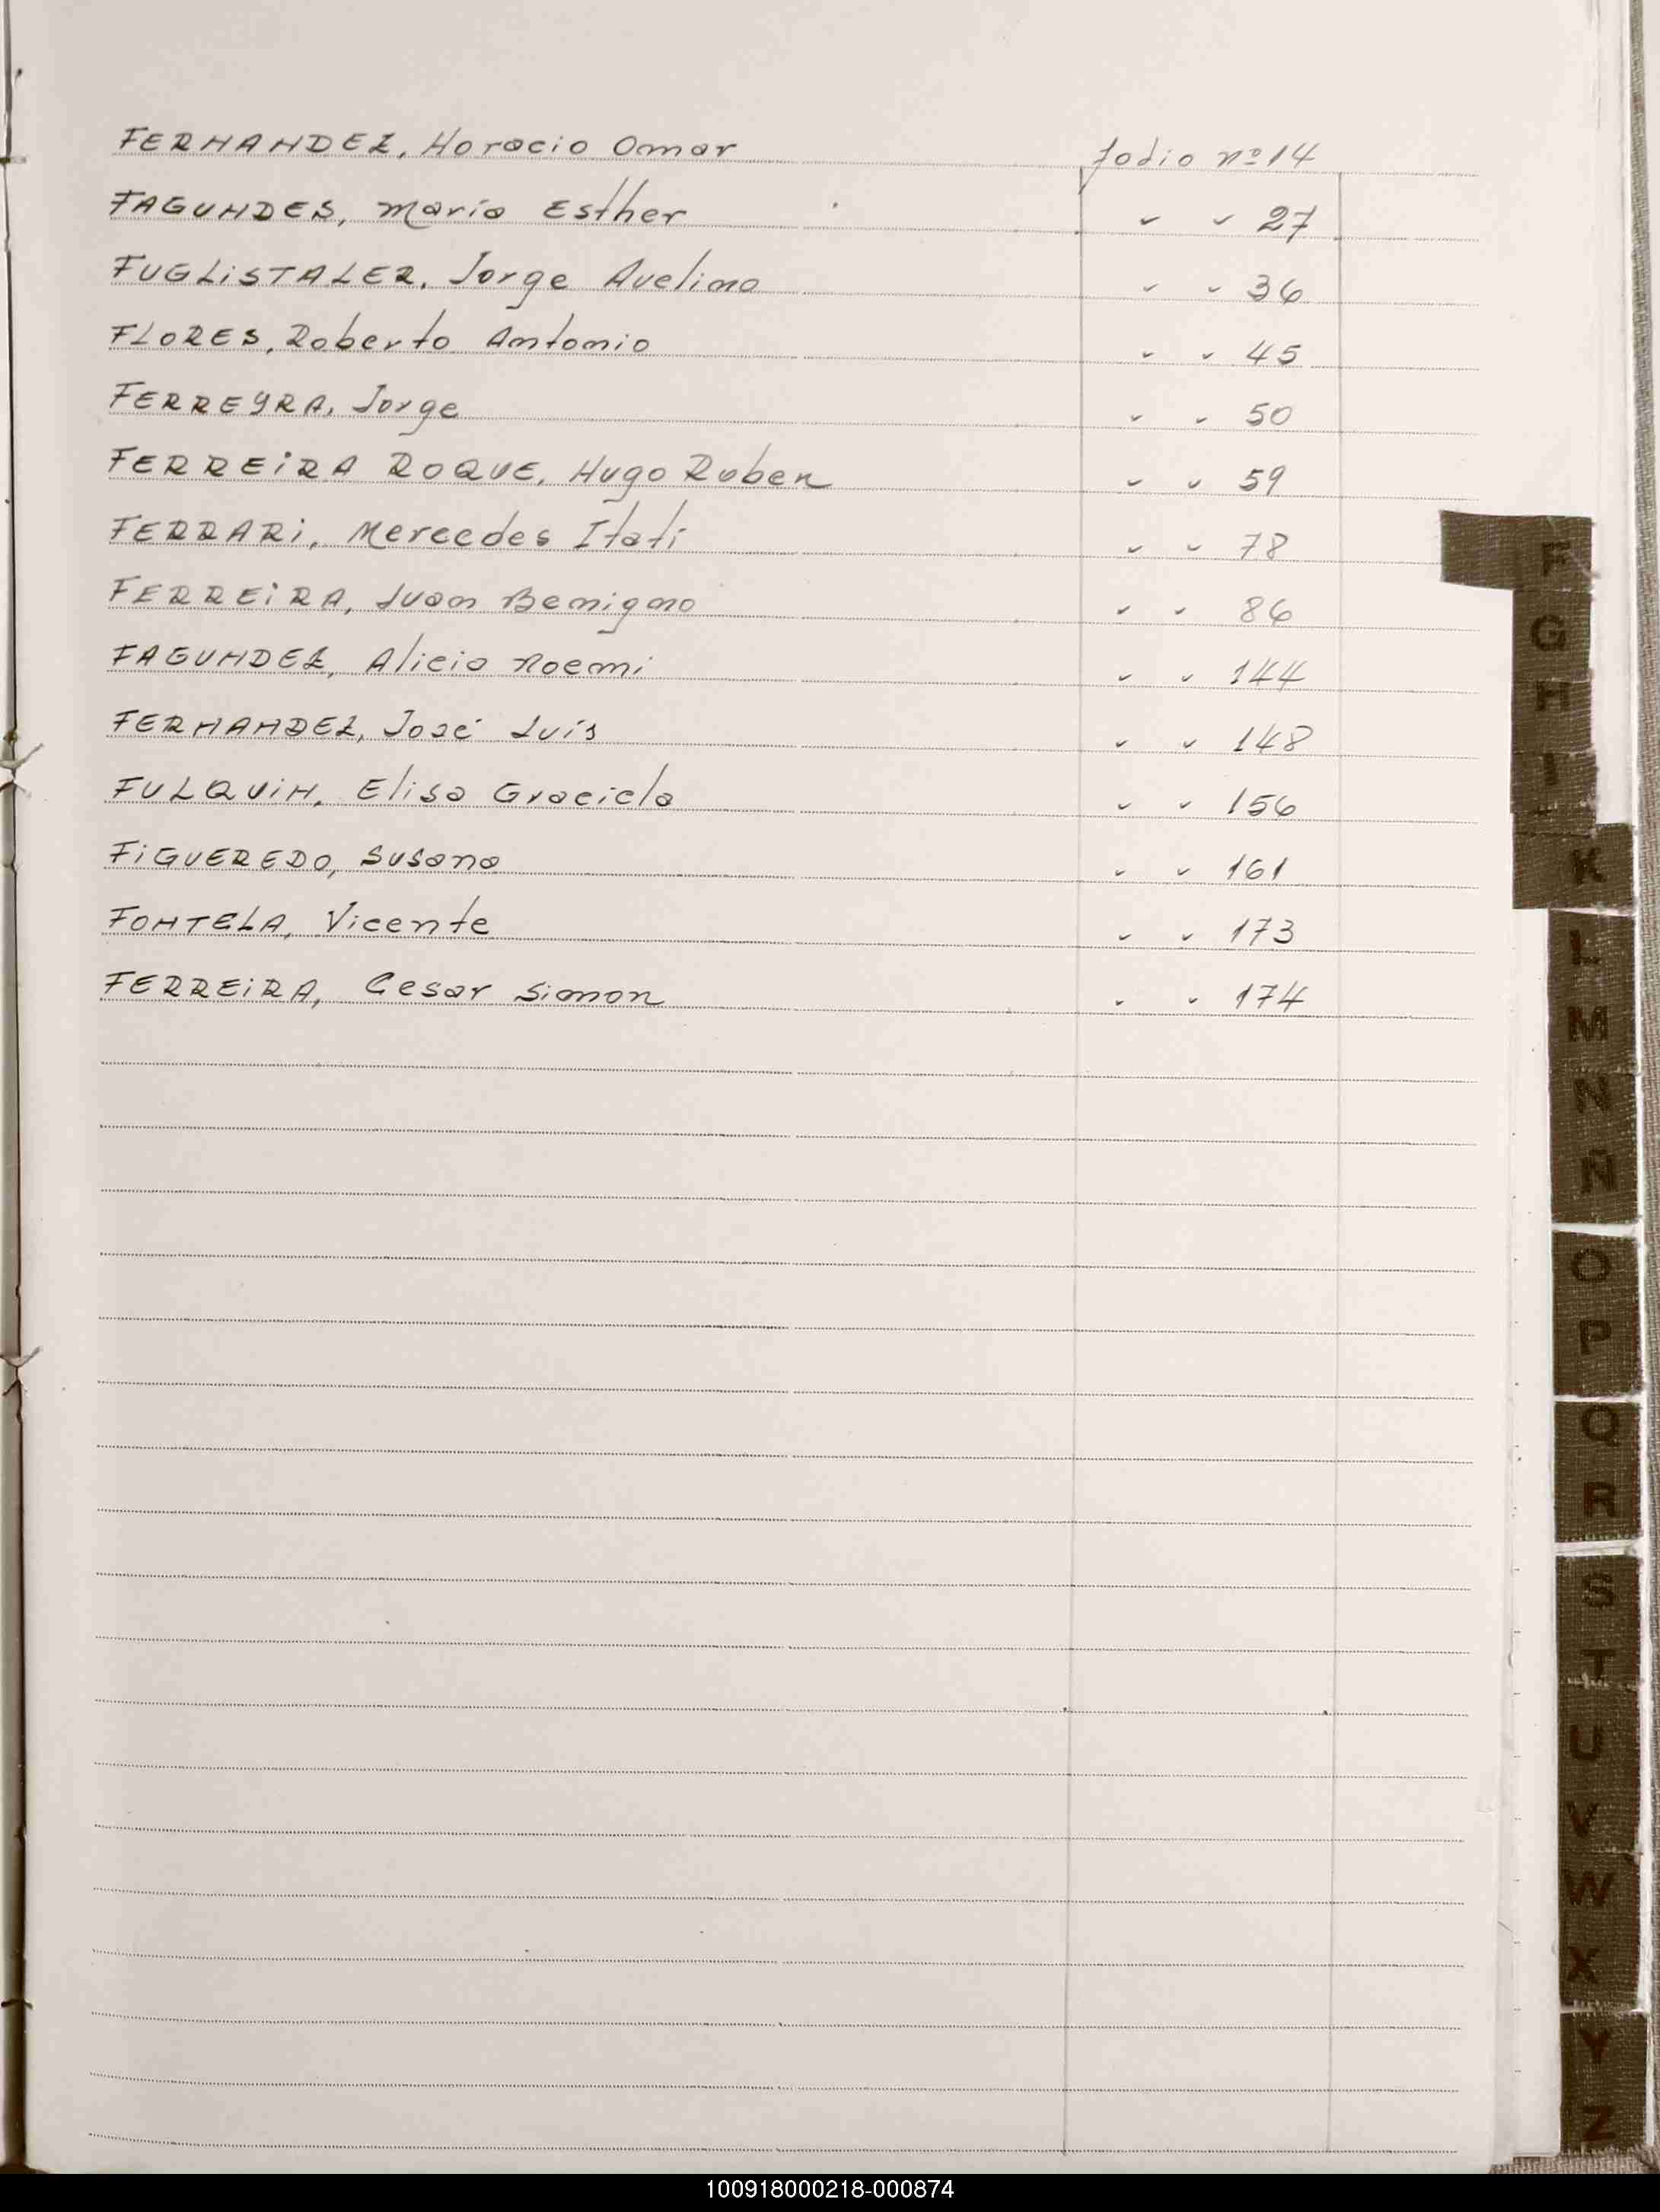 FERNANDEZ, Horacio Omar folio nº 14
FAGUNDES, Maria Esther " " 27
FUGLISTALER, Jorge Avelino " " 36
FLORES, Roberto Antonio " " 45
FERREYRA, Jorge " " 50
FERREIRA ROQUE, Hugo Ruben " " 59
FERRARI, Mercedes Itatí " " 78
FERREIRA, Juan Benigno " " 86
FAGUNDEZ, Alicia Noemi " " 144
FERNANDEZ, José Luís " " 148
FULQUIN, Elisa Graciela " " 156
FIGUEREDO, Susana " " 161
FONTELA, Vicente " " 173
FERREIRA, Cesar Simon " " 174
F
G
H
I
K
L
M
N
Ñ
O
P
Q
R
S
T
U
V
W
X
Y
Z
100918000218-000874